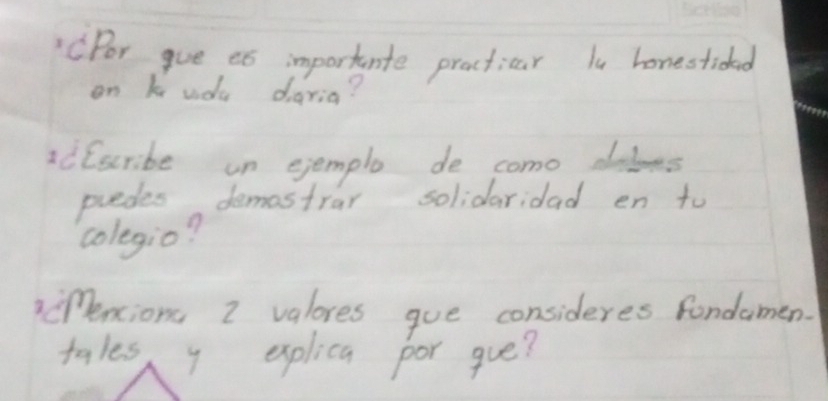 ¿Por que es importante practicar la honestidad
en la vida diaria?
¿Escribe un ejemplo de como
puedes demostrar solidaridad en tu
colegio?
¿Menciona 2 valores que consideres fundamen-
tales y explica por que?